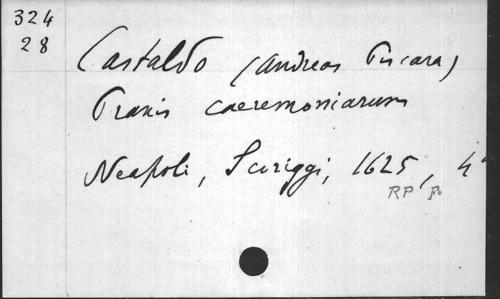 324
28
Castaldo (Andreas Piscara)
Praxis caeremoniarum
Neapoli, Scriggi, 1625, 4°
RP